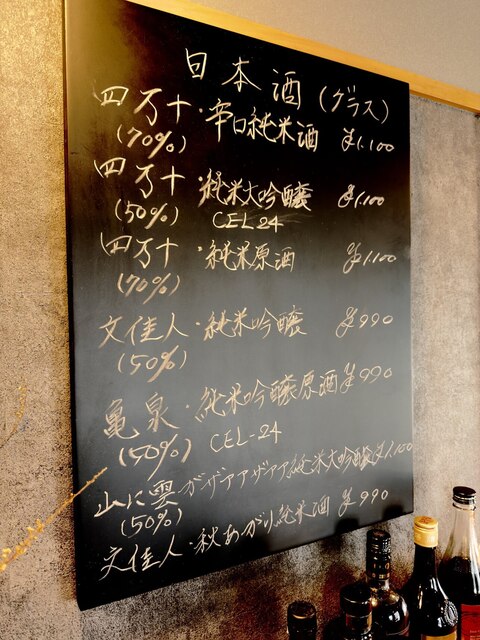 日本酒(グラス)
四万十・辛口純米酒 ¥1.100
(70%)
四万十・純米大吟醸 ¥1.100
(50%) CEL24
四万十・純米原酒 ¥1.100
(70%)
文佳人・純米吟醸 ¥990
(50%)
亀泉・純米吟醸原酒 ¥990
(50%) CEL-24
山に雲がザアアザアア純米大吟醸 ¥1.100
(50%)
文佳人・秋あがり純米酒 ¥990